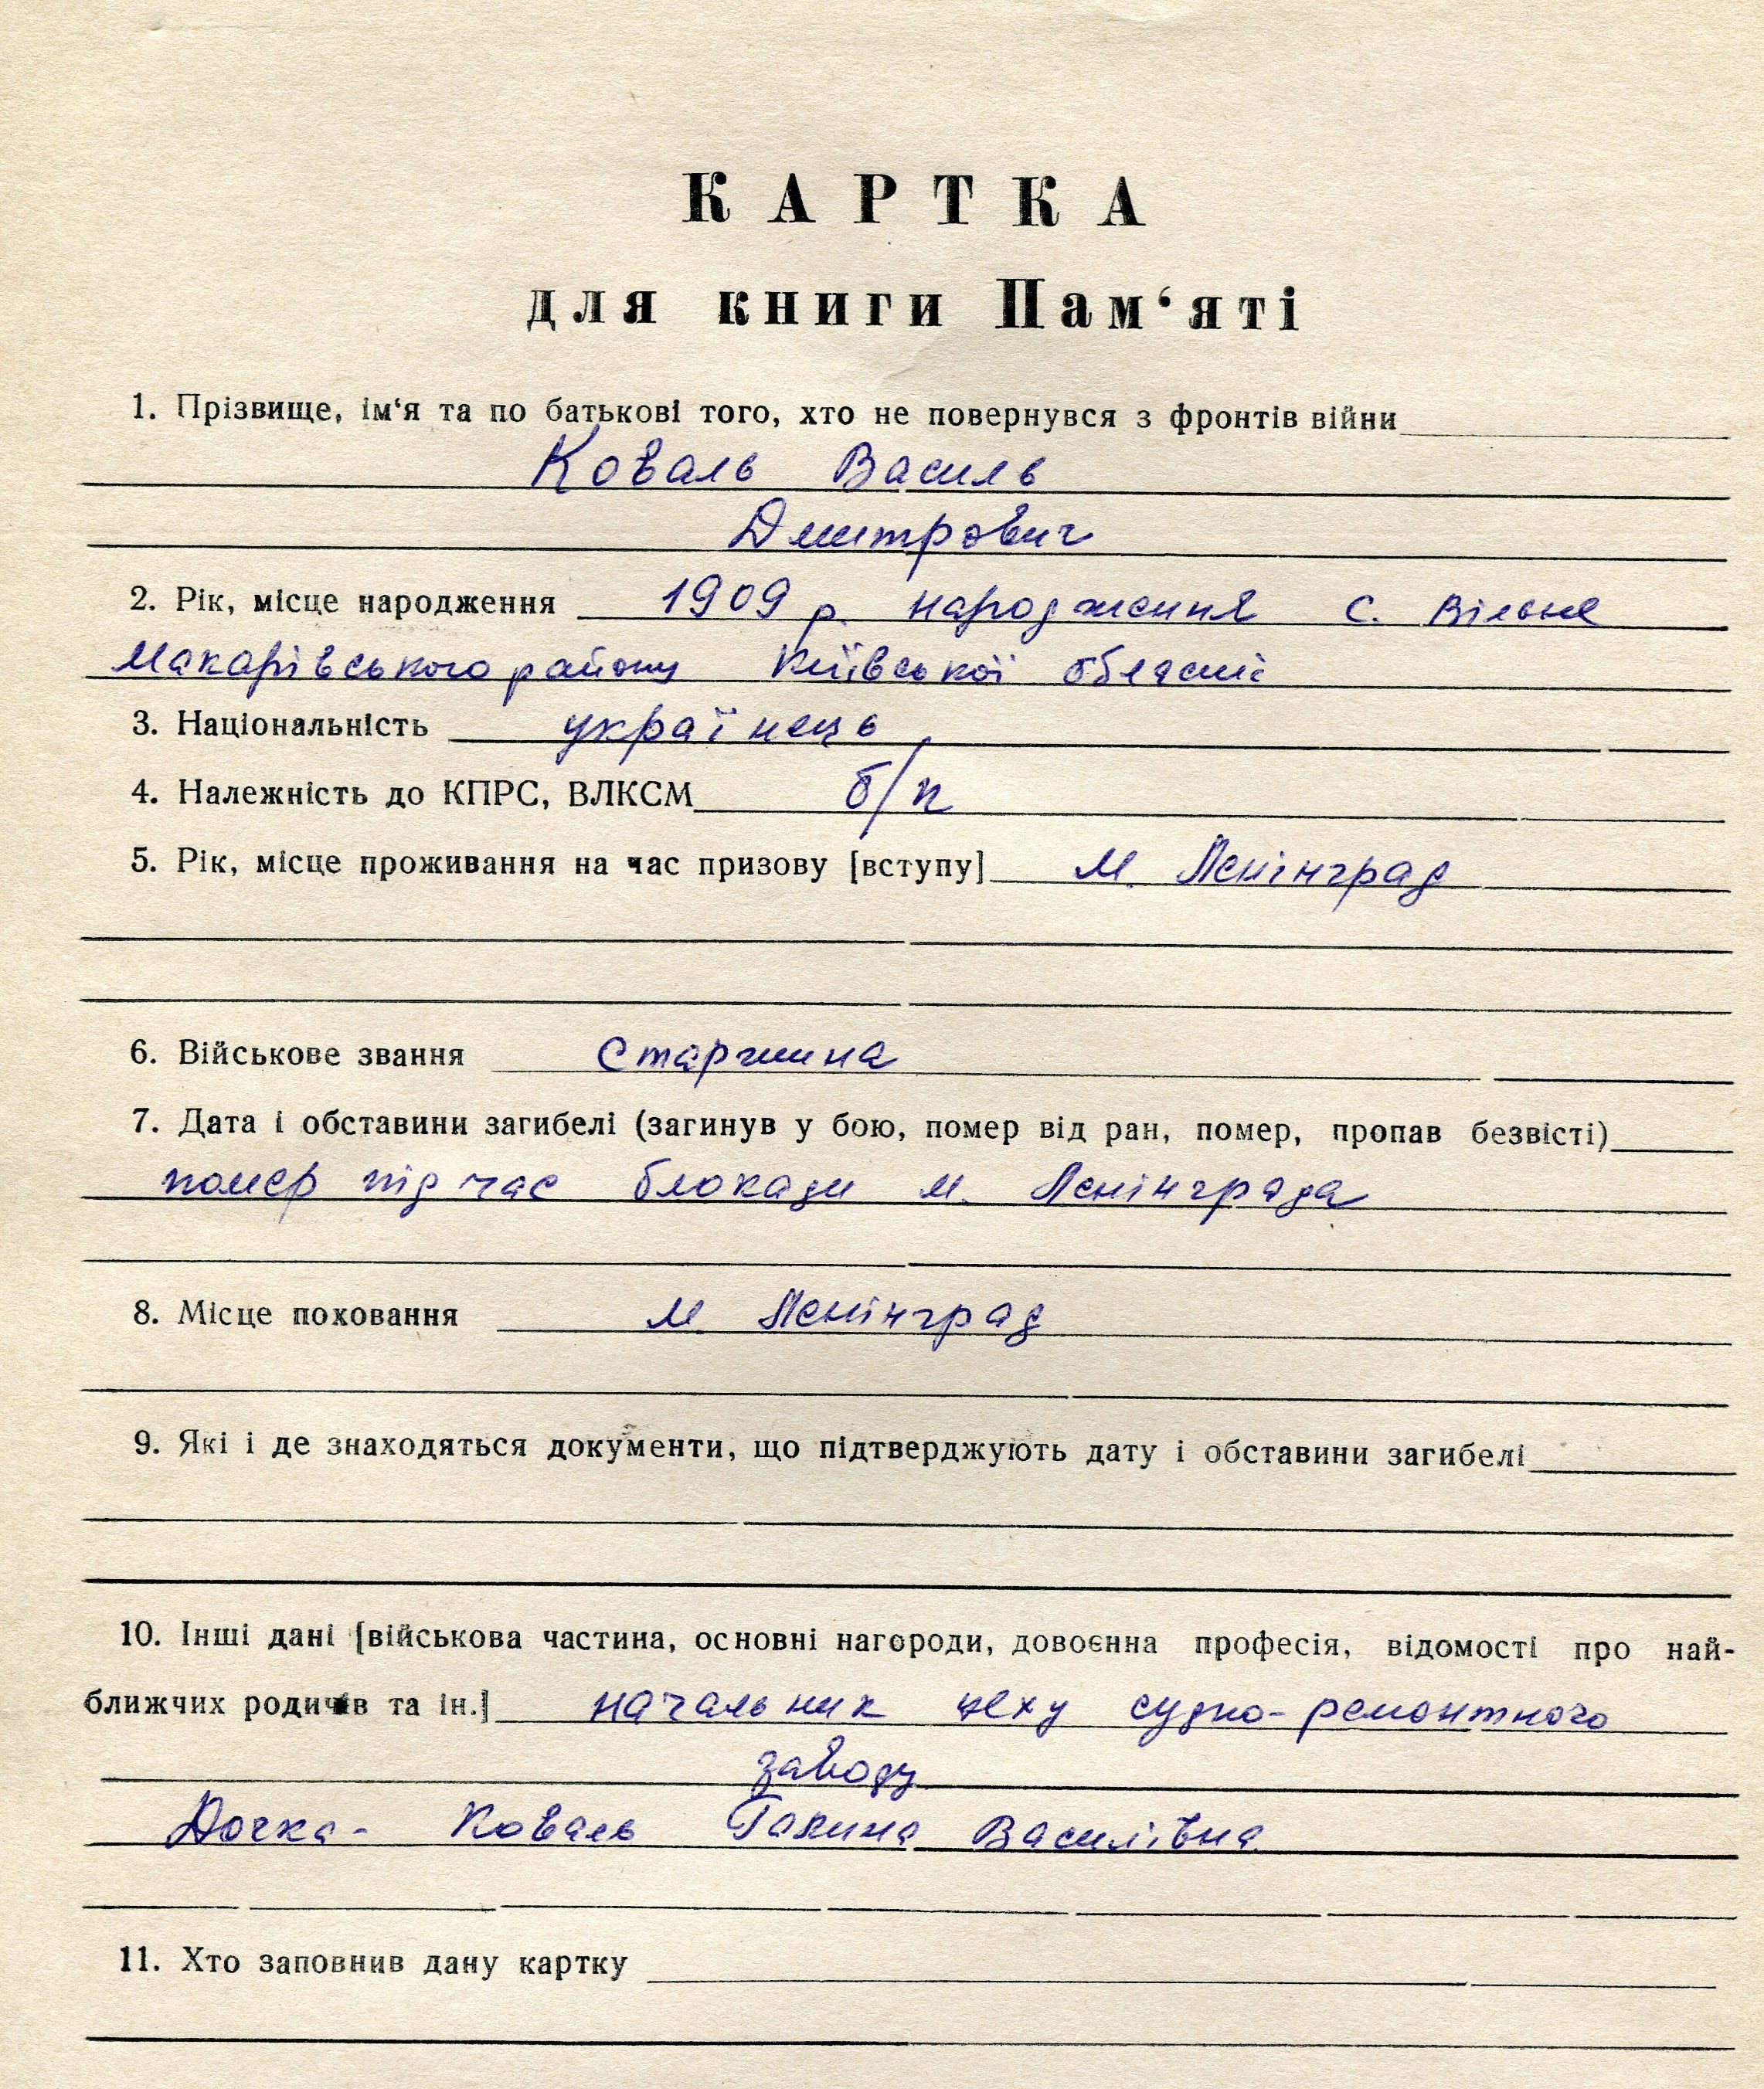 КАРТКА
для книги Пам‘яті
1. Прізвище, ім‘я та по батькові того, хто не повернувся з фронтів війни
Коваль Василь
Дмитрович
2. Рік, місце народження 1909 р. народження с. Вільне
Макарівського району Київської області
3. Національність українець
4. Належність до КПРС, ВЛКСМ б/п
5. Рік, місце проживання на час призову [вступу] м. Ленінград
6. Військове звання Старшина
7. Дата і обставини загибелі (загинув у бою, помер від ран, помер, пропав безвісті)
помер під час блокади м. Ленінграда
8. Місце поховання м. Ленінград
9. Які і де знаходяться документи, що підтверджують дату і обставини загибелі
10. Інші дані [військова частина, основні нагороди, довоєнна професія, відомості про най-
ближчих родичів та ін.] начальник цеху судно-ремонтного
заводу
Дочка - Коваль Галина Василівна
11. Хто заповнив дану картку